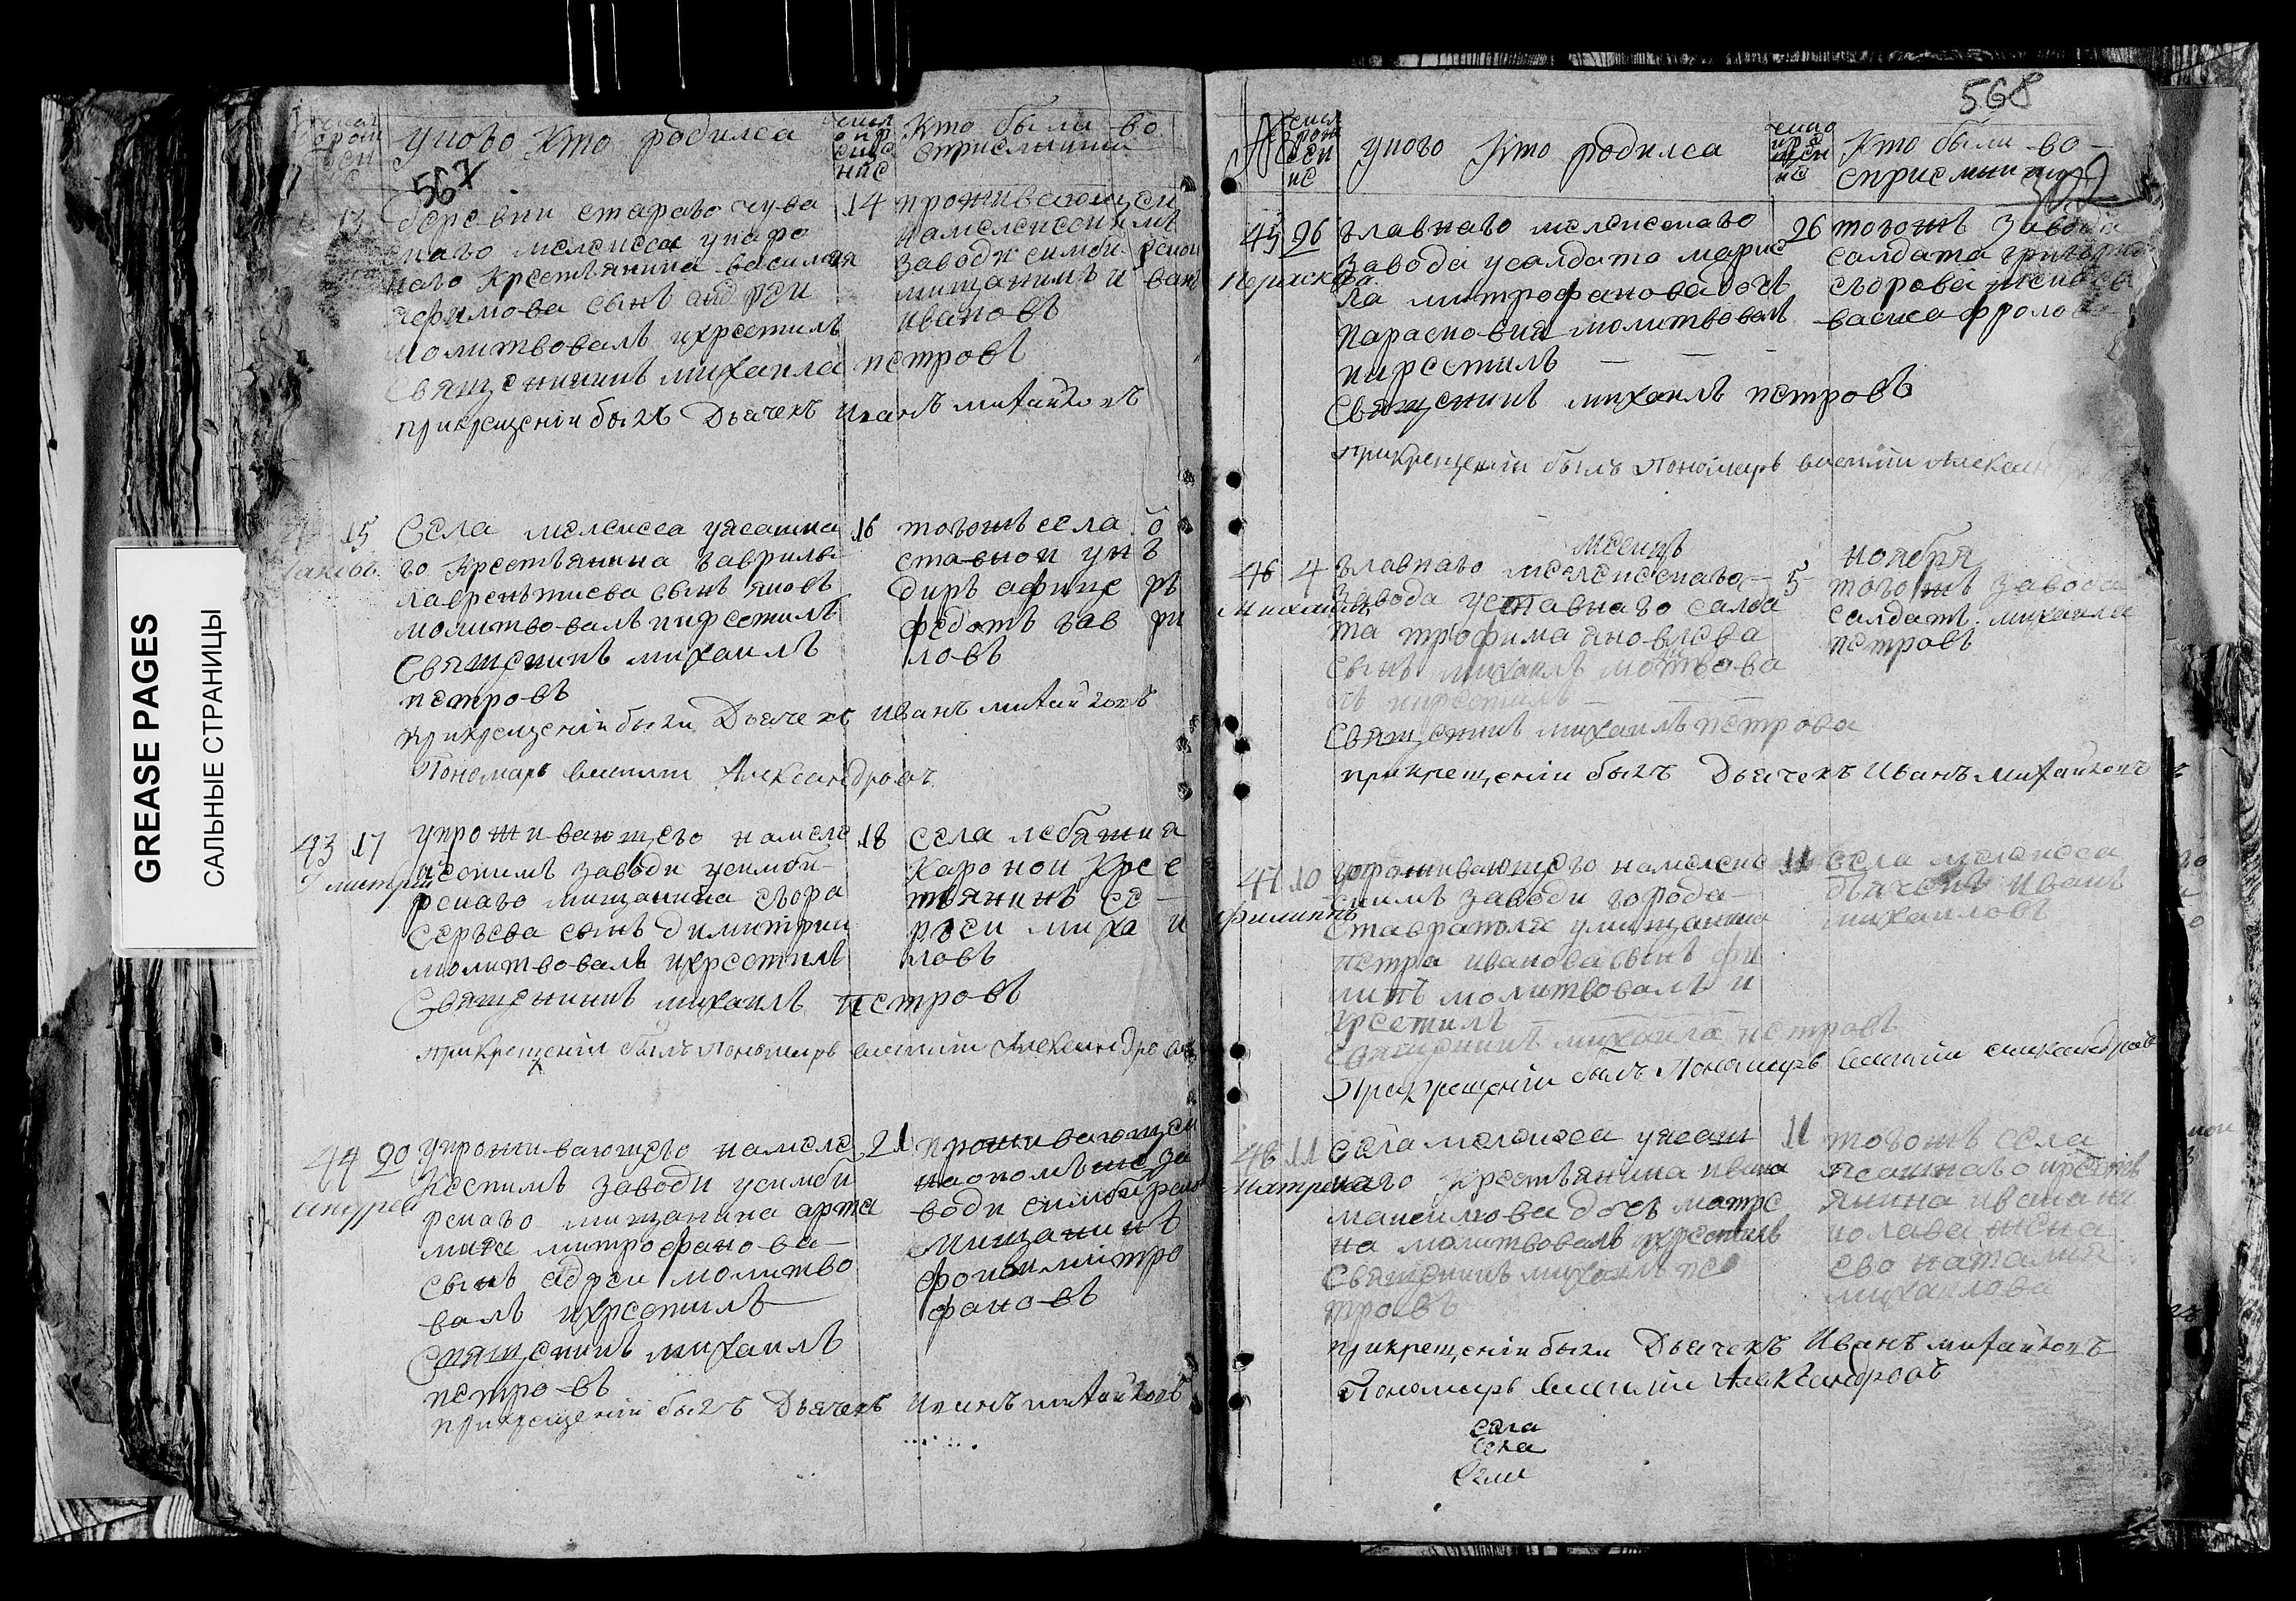 GREASE PAGES
САЛЬНЫЕ СТРАНИЦЫ
567
числа
о рож
дени
унового Кто родилса
числа
о кр
щ
ния
Кто были во
сприемники
13
деревни стараго чува
скаго мелекеса
наго крестьянина василия
ефимова сынъ андреи
молитвовалъ икрестилъ
священникъ михаила петровъ
14 проживающеи
намелекескимъ
заводи симбирскои
мищанинъ иванъ
ивановъ
прикрещении былъ Дьячекъ Иванъ михайловъ
15
Iаковъ
Села мелекеса уясашна
го крестьянина гаврила
лаврентиева сынъ яковъ
молитвовалъ икрестилъ
священникъ михаилъ
петровъ
16 тогожъ села о
ставнои унъ
диръ афице ръ
федотъ гав ри
ловъ
прикрещении были Дьячекъ Иванъ михайловъ
Пономарь василии Александровъ
43 17
Дмитрий
упроживающего намеле
кескимъ заводи усимби
рскаго мищанина егора
сергева сынъ димитрии
молитвовалъ икрестилъ
Священникъ михаилъ петровъ
18 села лебяжиа
Каронои кресе
тьянинъ се
ргеи миха и
ловъ
прикрещении былъ пономарь василии Александровъ
44 20
андреи
упроживающего намеле
кескимъ заводи усимби
рскаго мищанина арта
мина митрофанова
сынъ адреи молитво
валъ икрестилъ
Священникъ михаилъ
петровъ
21 проживающеи
наономъже за
води симбирскои
мищанинъ
фокои митро
фановъ
прикрещении былъ Дьячекъ Иванъ михайловъ
568
302
№
числа
о рож
дени
ис
унового Кто родилса
число
крещ
ени
Кто были во
сприемники
45 26
параскева
главнаго мелекескаго
завода усалдата марке
ла митрофанова дочь
парасковия молитвовалъ
икрестилъ
Священникъ михаилъ петровъ
26 тогожъ завода
салдата григория
егорова жена
васса фролова
прикрещении былъ пономарь василии Александровъ
месецъ ноября
46 4
Михаилъ
главнаго мелекескаго
завода уставнаго салда
та трофима яковлева
сынъ михаилъ молитвова
лъ икрестилъ
Священникъ михаилъ петрова
5 тогожъ завода
салдатъ михаила
петровъ
прикрещении былъ Дьячекъ Иванъ михайловъ
47 10
филиппъ
упроживающего намелеке
скимъ заводи города
Ставраполя умищанина
петра иванова сынъ фи
липъ молитвовалъ и
крестилъ
священникъ михаила петровъ
11 села мелекеса
дьячекъ иванъ
михаиловъ
Прикрещении былъ Пономарь василии александровъ
48 11
матрена
села мелекеса уясаш
наго крестьянина ивана
максимова дочь матре
на молитвовалъ икрестилъ
священникъ михаилъ пе
тровъ
11 тогожъ села
ясашнаго крестьянъ
янина ивана ни
колаева жена
ево наталия
михаилова
прикрещении были Дьячекъ Иванъ михайловъ
Пономарь василии Александровъ
села
села